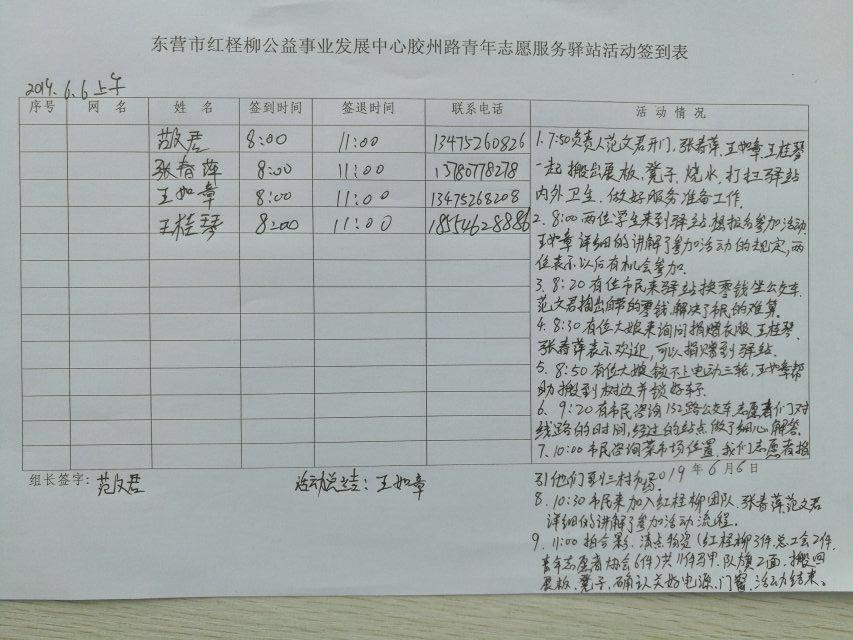 东营市红柽柳公益事业发展中心胶州路青年志愿服务驿站活动签到表
2019.6.6上午
序号 网 名 姓 名 签到时间 签退时间 联系电话 活 动 情 况
范文君 8:00 11:00 13475260826
张春萍 8:00 11:00 15780778278
王如章 8:00 11:00 13475268208
王桂琴 8:00 11:00 18554628886
1.7:50负责人范文君开门,张春萍、王如章、王桂琴
一起搬出展板、凳子、烧水、打扫驿站
内外卫生、做好服务准备工作.
2. 8:00两位学生来到驿站、想报名参加活动
王如章详细的讲解了参加活动的规定,两
位表示以后有机会参加.
3. 8:20有位市民来驿站换零钱坐公交车.
范文君掏出自带的零钱,解决了市民的难题.
4. 8:30有位大娘来询问捐赠衣服、王桂琴、
张春萍表示欢迎,可以捐赠到驿站.
5、8:50有位大娘锁不上电动三轮,王如章帮
助搬到树边并锁好车子.
6、9:20有市民咨询152路公交车、志愿者们对
线路的时间,经过的站点做了细心解答.
7、10:00市民咨询菜市场位置、我们志愿者指
引他们到三村市场
2019 年 6 月 6 日
组长签字:范文君 活动总结:王如章
8、10:30市民来加入红柽柳团队、张春萍范文君
详细的讲解了参加活动流程.
9、11:00拍合影、清点物资(红柽柳3件、总工会2件
青年志愿者协会6件)共11件马甲、队旗2面、搬回
展板、凳子、确认关好电源、门窗、活动结束、